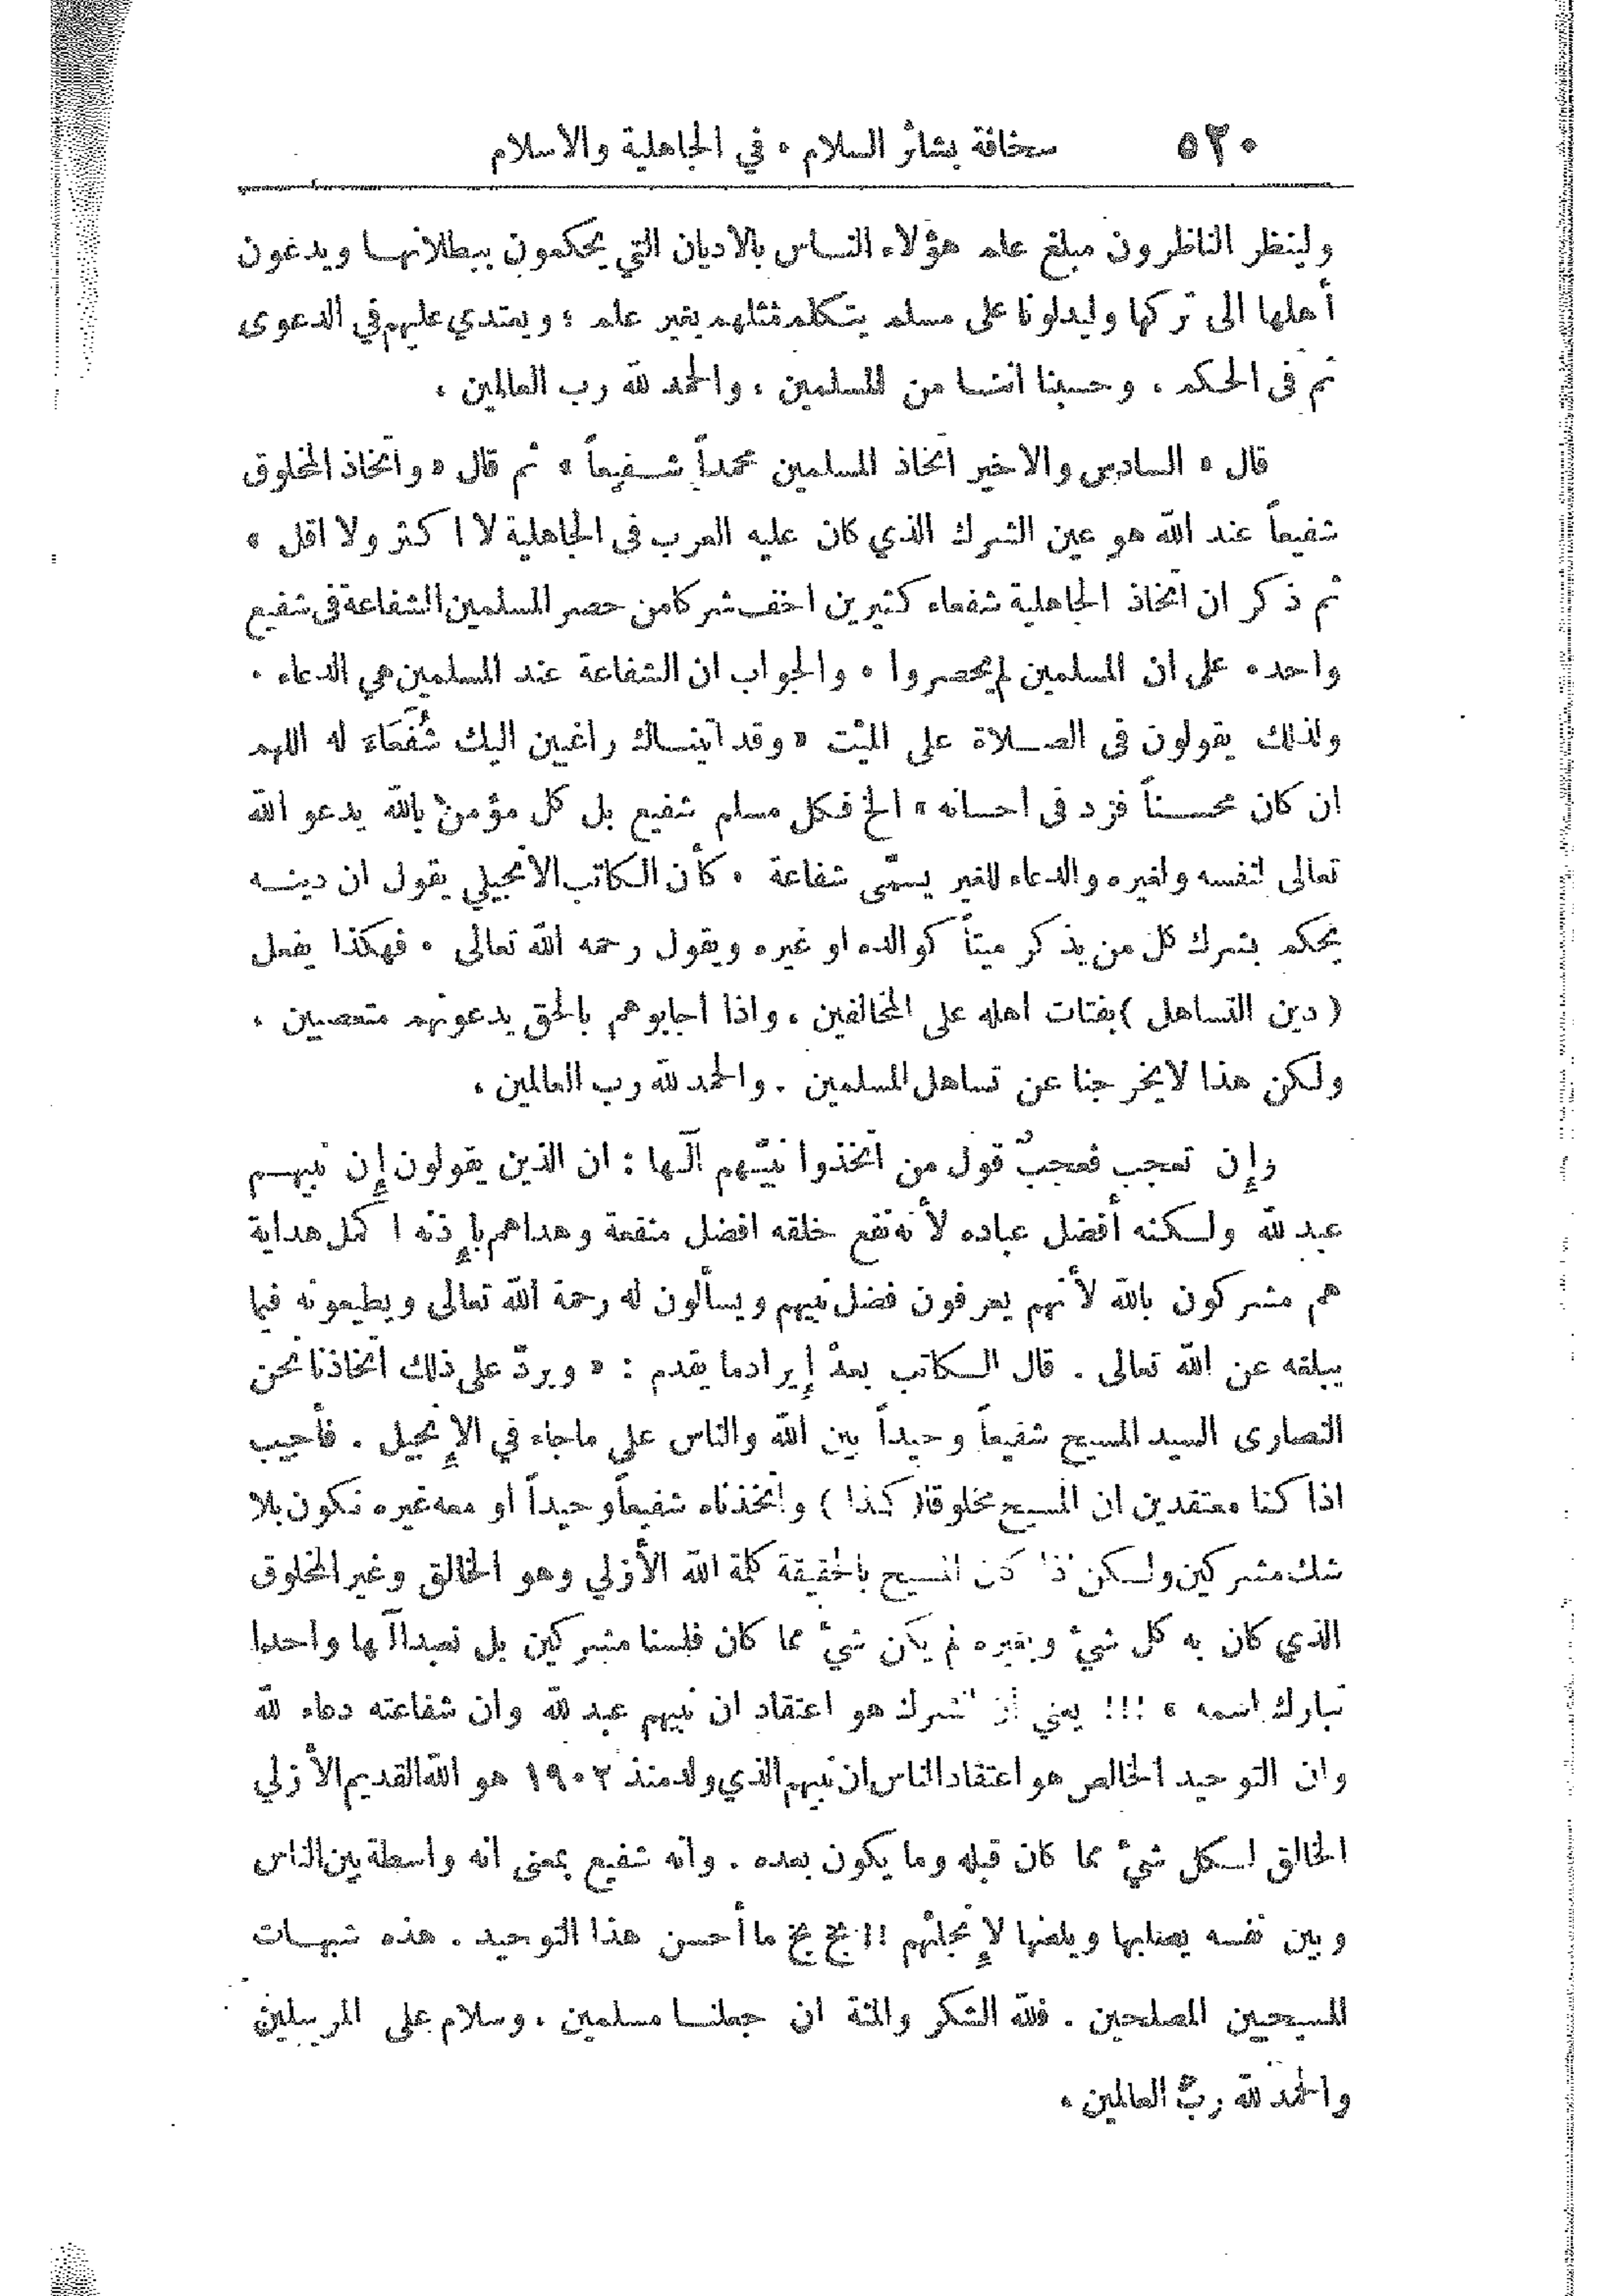 ٥٢٠ سخافة بشائر السلام • في الجاهلية والاسلام
ولينظر الناظرون مبلغ علم هؤلاء النـاس بالاديان التي يحكمون ببطلانهـا ويدعون
أهلها الى تركها وليدلونا على مسلم يتكلم مثلهم بغير علم ؛ ويعتدي عليهم في الدعوى
ثم فى الحكم . وحسبنا اننـا من المسلمين ، والحمد لله رب العالمين ،
قال « السادس والاخير اتخاذ المسلمين محمداً شـفيعاً » ثم قال « واتخاذ المخلوق
شفيعاً عند الله هو عين الشرك الذي كان عليه العرب فى الجاهلية لا اكثر ولا اقل »
ثم ذكر ان اتخاذ الجاهلية شفعاء كثيرين اخف شركا من حصر المسلمين الشفاعة فى شفيع
واحد • على ان المسلمين لم يحصروا • والجواب ان الشفاعة عند المسلمين هي الدعاء .
ولذلك يقولون فى الصـلاة على الميت « وقد اتينـاك راغبين اليك شُفَعَاءَ له اللهم
ان كان محسـناً فزد فى احسانه » الخ فـكل مسلم شفيع بل كل مؤمن بالله يدعو الله
تعالى لنفسه ولغيره والدعاء للغير يسمَّى شفاعة . كأن الـكاتب الانجيلي يقول ان دينـه
يحكم بشرك كل من يذكر ميتاً كوالده او غيره ويقول رحمه الله تعالى . فهكذا يفعل
( دين التساهل ) يفتات اهله على المخالفين ، واذا اجابوهم بالحق يدعونهم متعصبين .
ولـكن هذا لا يخرجنا عن تساهل المسلمين . والحمد لله رب العالمين ،
وإن تعجب فعجبٌ قول من اتخذوا نبيّهم الٓها : ان الذين يقولون إن نبيهـم
عبد لله ولـكنه أفضل عباده لأنه نفع خلقه افضل منفعة وهداهم بإذنه اكمل هداية
هم مشركون بالله لأنهم يعرفون فضل نبيهم ويسألون له رحمة الله تعالى ويطيعونه فيما
يبلغه عن الله تعالى . قال الـكاتب بعد إيراد ما يقدم : « ويردّ على ذلك اتخاذنا نحن
النصارى السيد المسيح شفيعاً وحيداً بين الله والناس على ماجاء في الإنجيل . فأجيب
اذا كنا معتقدين ان المسيح مخلوقا ( كذا ) واتخذناه شفيعاً وحيداً او معه غيره نكون بلا
شك مشركين ولـكن اذا كان المسيح بالحقيقة كلمة الله الأزلي وهو الخالق وغير المخلوق
الذي كان به كل شيء وبغيره لم يكن شيء مما كان فلسنا مشركين بل نعبد الٓها واحدا
تبارك اسمه » !!! يعني أن الشرك هو اعتقاد ان نبيهم عبد لله وان شفاعته دعاء لله
وان التوحيد الخالص هو اعتقاد الناس ان نبيهم الذي ولد منذ ١٩٠٢ هو الله القديم الأزلي
الخالق لـكل شيء مما كان قبله وما يكون بعده . وانه شفيع بمعنى انه واسطة بين الناس
وبين نفسه يصلبها ويلعنها لإنجائهم !! بخ بخ ما أحسن هذا التوحيد . هذه شبهـات
المسيحيين المصلحين . فلله الشكر والمنة ان جعلنـا مسلمين ، وسلام على المرسلين
والحمد لله ربّ العالمين ،